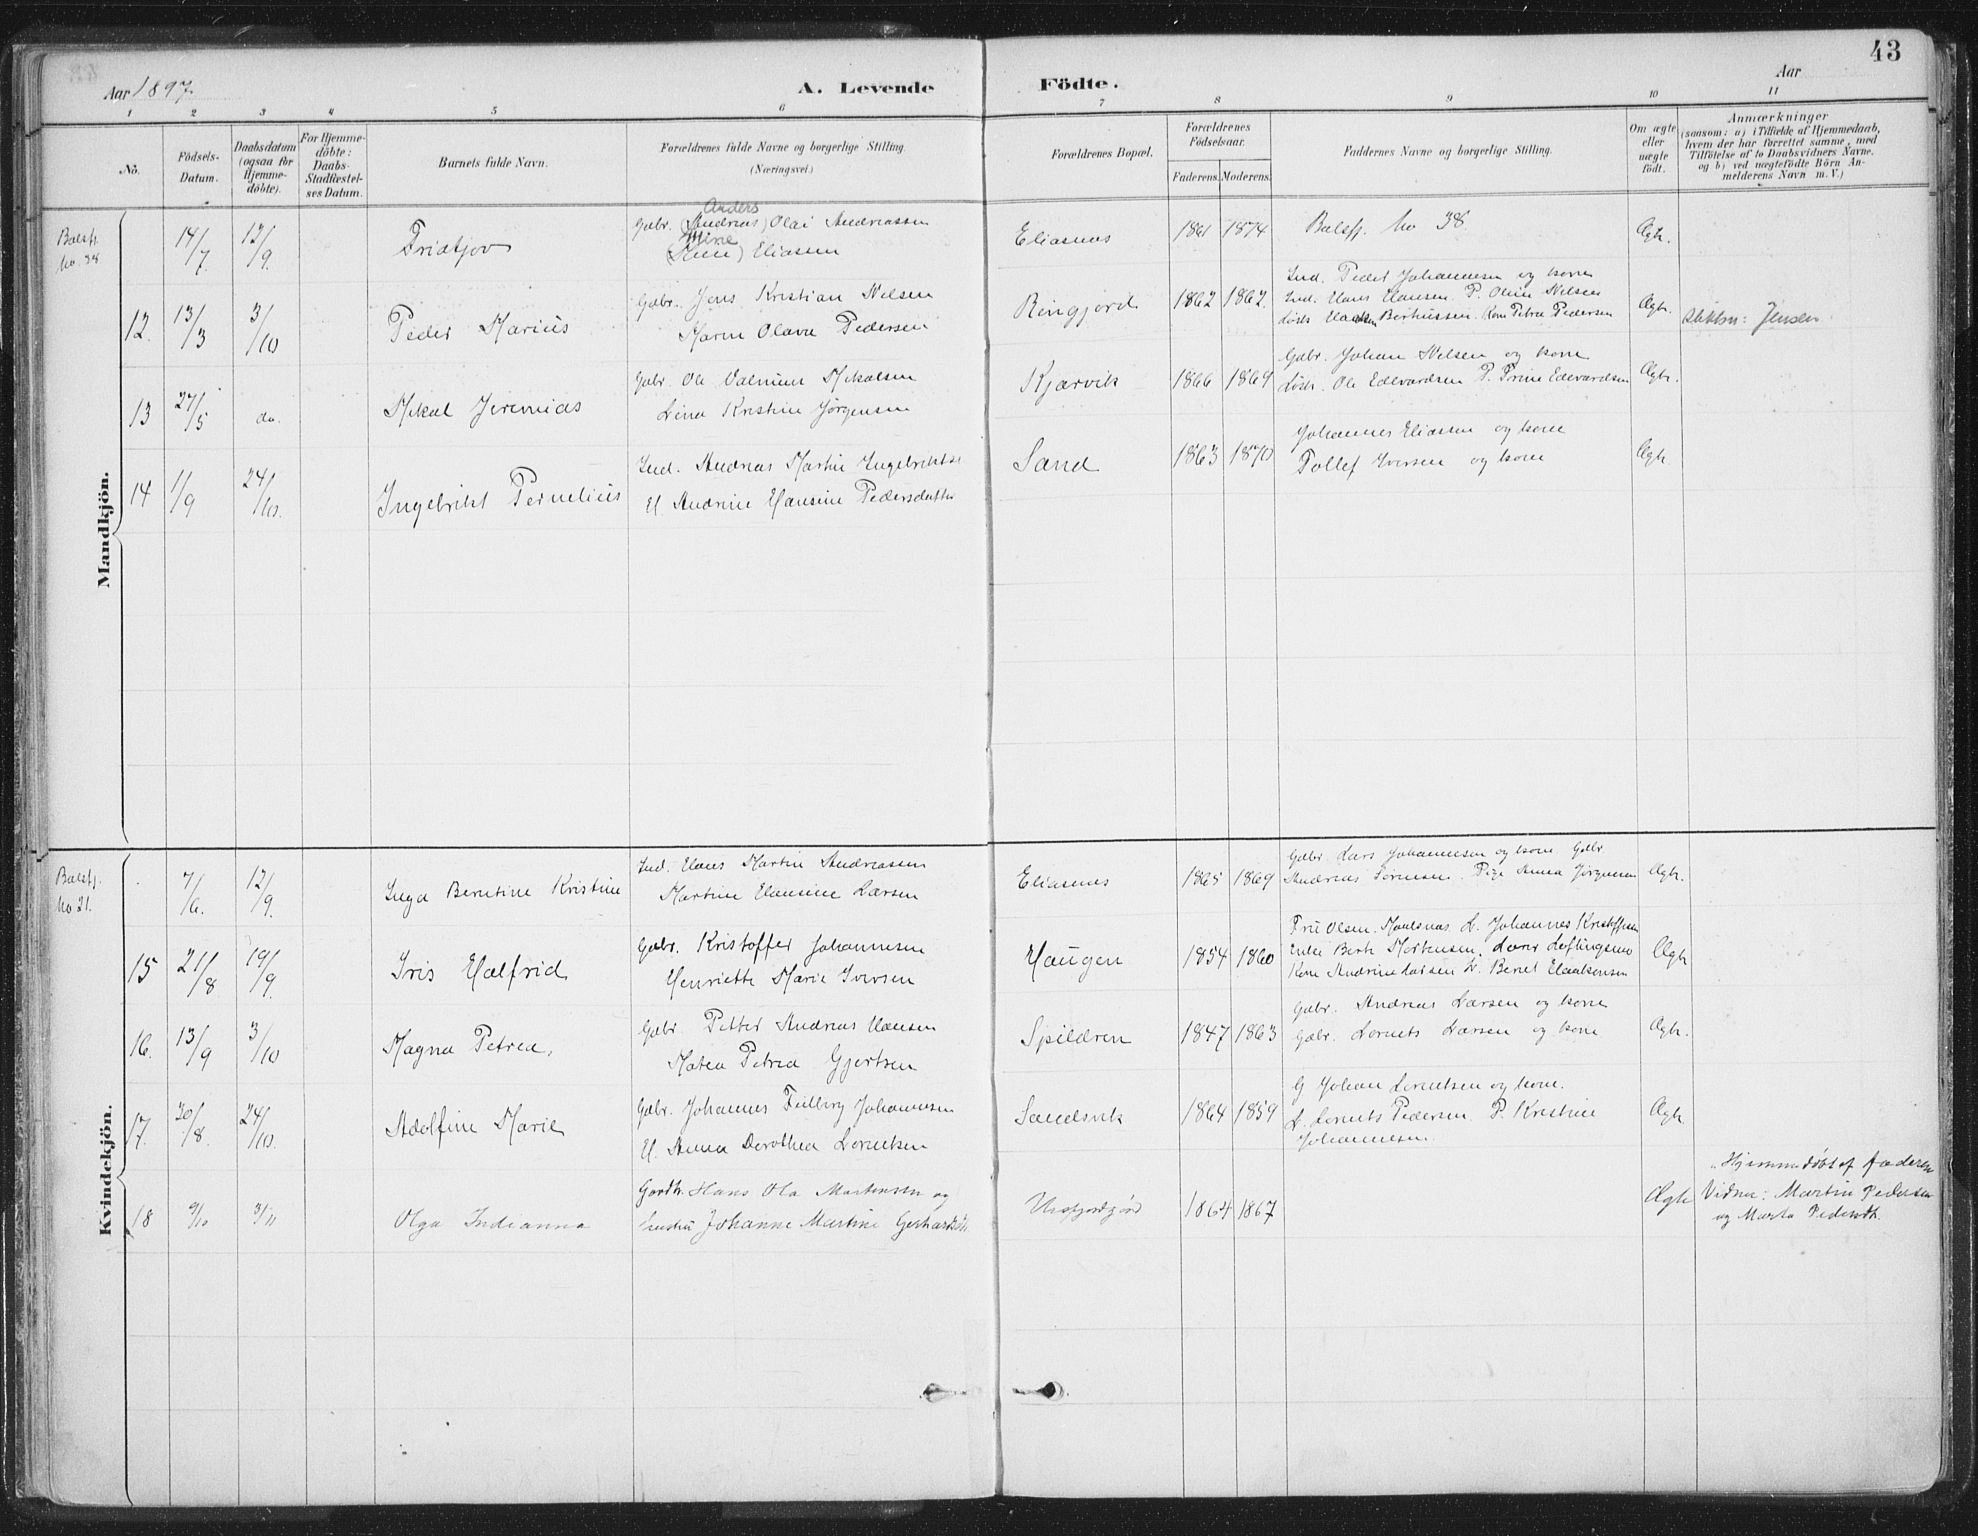 43
Aar 1897.
A. Levende
Födte.
Aar
1 2 3 4 5 6 7 8 9 10 11
No.
Födsels-
Datum.
Daabsdatum
(ogsaa for
Hjemme-
döbte).
For Hjemme-
döbte:
Daabs-
Stadfæstel-
ses Datum.
Barnets fulde Navn.
Forældrenes fulde Navne og borgerlige Stilling.
(Næringsvei.)
Forældrenes Bopæl.
Forældrenes
Födselsaar.
Faderens. Moderens.
Faddernes Navne og borgerlige Stilling.
Om ægte
eller
uægte
födt.
Anmærkninger
(saasom: a) i Tilfælde af Hjemmedaab,
hvem der har forrettet samme, med
Tilföielse af to Daabsvidners Navne.
og b) ved uægtefödte Börn An-
melderens Navn m. V.)
Mandkjön.
Balsfj.
No. 38
14/7 12/9
Fridtjov
Anders
Gbr. (Andreas) Olai Andreassen
Mine
Eliasen
Eliasnes
1861 1874
Balsfj. No 38.
Ægte.
12. 13/3 3/10
Peder Marius
Gbr. Jens Kristian Nilsen
Maren Olava Pedersen
Ringjord
1862 1862.
Ind. Peder Johannesen og kone
Ind. Hans Hansen. P. Oline Nilsen
Berhussen. Kone Petra Pedersen
Ægt.
Jensen.
13 27/5 do.
Mikal Jeremias
Gbr. Ole Mikalsen
Lina Kristine Jørgensen
Kjærvik
1866 1869
Gbr. Johan Nilsen og kone
Ole Edevardsen P. Edevardsen
Ægt.
14 1/9 24/10.
Ingebrikt Pernelius
Ind. Andreas Martin Ingebriktsen
H. Andrine Hansine Pedersdatter
Sand
1863 1870
Johannes Eliassen og kone
Tollef Iversen og kone
Ægt.
Kvindekjön.
Balsfj.
No 21.
7/6. 12/9.
Inga Berntine Kristine
Ind. Hans Martin Andreassen
Martine Hansine Larsen
Eliasnes
1865 1869
Gbr. Lars Johannesen og kone Gbr.
Andreas Sørensen. Pige Anna Jørgensen
Ægt.
15 21/8 19/9
Iris Halfrid
Gbr. Kristoffer Johannesen
Henriette Marie Iversen
Haugen
1854 1860
Fru Olsen. Maalsnes. L. Johannes Kristoffersen
Enke Berth Mortensen.
Kone Andrine Larsen L. Bernt Haakonsen
Ægt.
16. 13/9 3/10
Magna Petrea,
Gbr. Petter Andreas Hansen
Matea Petrea Gjertsen
Spildren
1847 1863
Gbr. Andreas Larsen og kone
Gbr. Lornts Larsen og kone
Ægt.
17. 30/8. 24/10.
Adolfine Marie
Gbr. Johannes Johannesen
H. Anna Dorothea Lorntsen
Sandsvik
1864 1859
G Johan Lorntsen og kone.
L. Lornts Pedersen. P. Kristine
Johannesen.
Ægt.
18 9/10 3/11
Olga Indianna
Gaardbr. Hans Ola Martinsen og
hustru Johanne Martine
1864 1867
Ægte
Hjemmedøbt af faderen
Vidner: Martin Pedersen
og Marta Pedersdt.